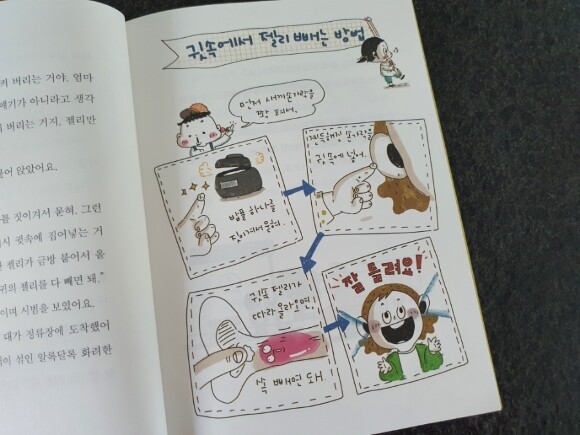 커 버리는 거야. 얼마
매기가 아니라고 생각
버리는 거지. 젤리만
앉았어요.
를 짓이겨서 묻혀. 그런
시 귓속에 집어넣는 거
젤리가 금방 붙어서 올
귀의 젤리를 다 빼면 돼."
이며 시범을 보였어요.
대가 정류장에 도착했어
섞인 알록달록 화려한
귓속에서 젤리 빼는 방법
먼저 새끼손가락을
쫙 펴서,
밥풀 하나를
찐득해진 손가락을
귓속에 넣어.
귓속 젤리가
따라 올라오면,
쏙 빼면 돼.
잘 들려요!